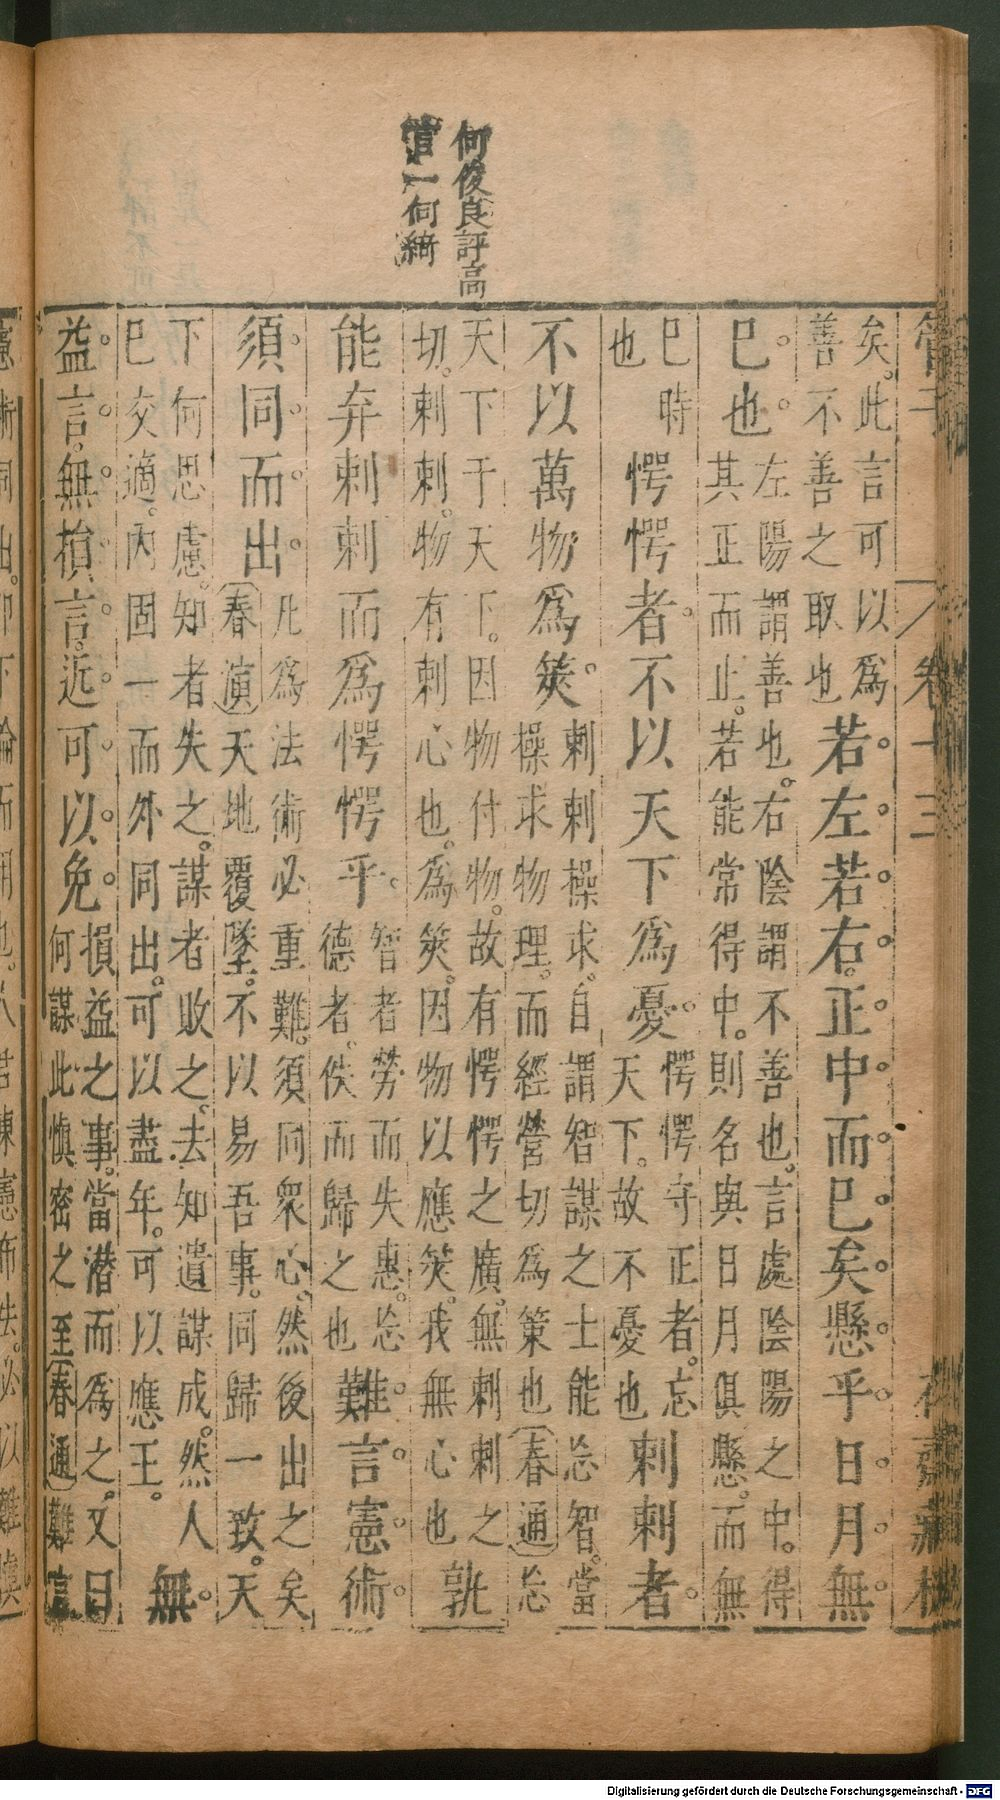 何俊良評高
管一何綺
管子 卷十三 花齋藏板
矣。此言可以爲
善不善之取也
若左若右。正中而已矣。懸乎日月無
已也。
左陽謂善也。右陰謂不善也。言處陰陽之中。得
其正而止。若能常得中。則名與日月俱懸。而無
已時
也
愕愕者。不以天下爲憂。
愕愕守正者。忘
天下。故不憂也
刺刺者。
不以萬物爲筴。
刺刺操求。自謂智謀之士能忘智。當
操求物理。而經營切爲策也春通忘
天下于天下。因物付物。故有愕愕之廣。無刺刺之
切。刺刺。物有刺心也。爲筴。因物以應筴。我無心也
孰
能弃刺刺而爲愕愕乎。
智者勞而失惠。忘
德者。佚而歸之也
難言憲術。
須同而出。
凡爲法術必重難。須同衆心。然後出之矣
春演天地覆墜。不以易吾事。同歸一致。天
下何思慮。知者失之。謀者敗之。去知遺謀成。然人
已交適。內固一而外同出。可以盡年。可以應王。
無
益言。無損言。近可以免。
損益之事。當潜而爲之。又曰
何謀此慎密之至春通難言
憲術同出。
Digitalisierung gefördert durch die Deutsche Forschungsgemeinschaft - DFG